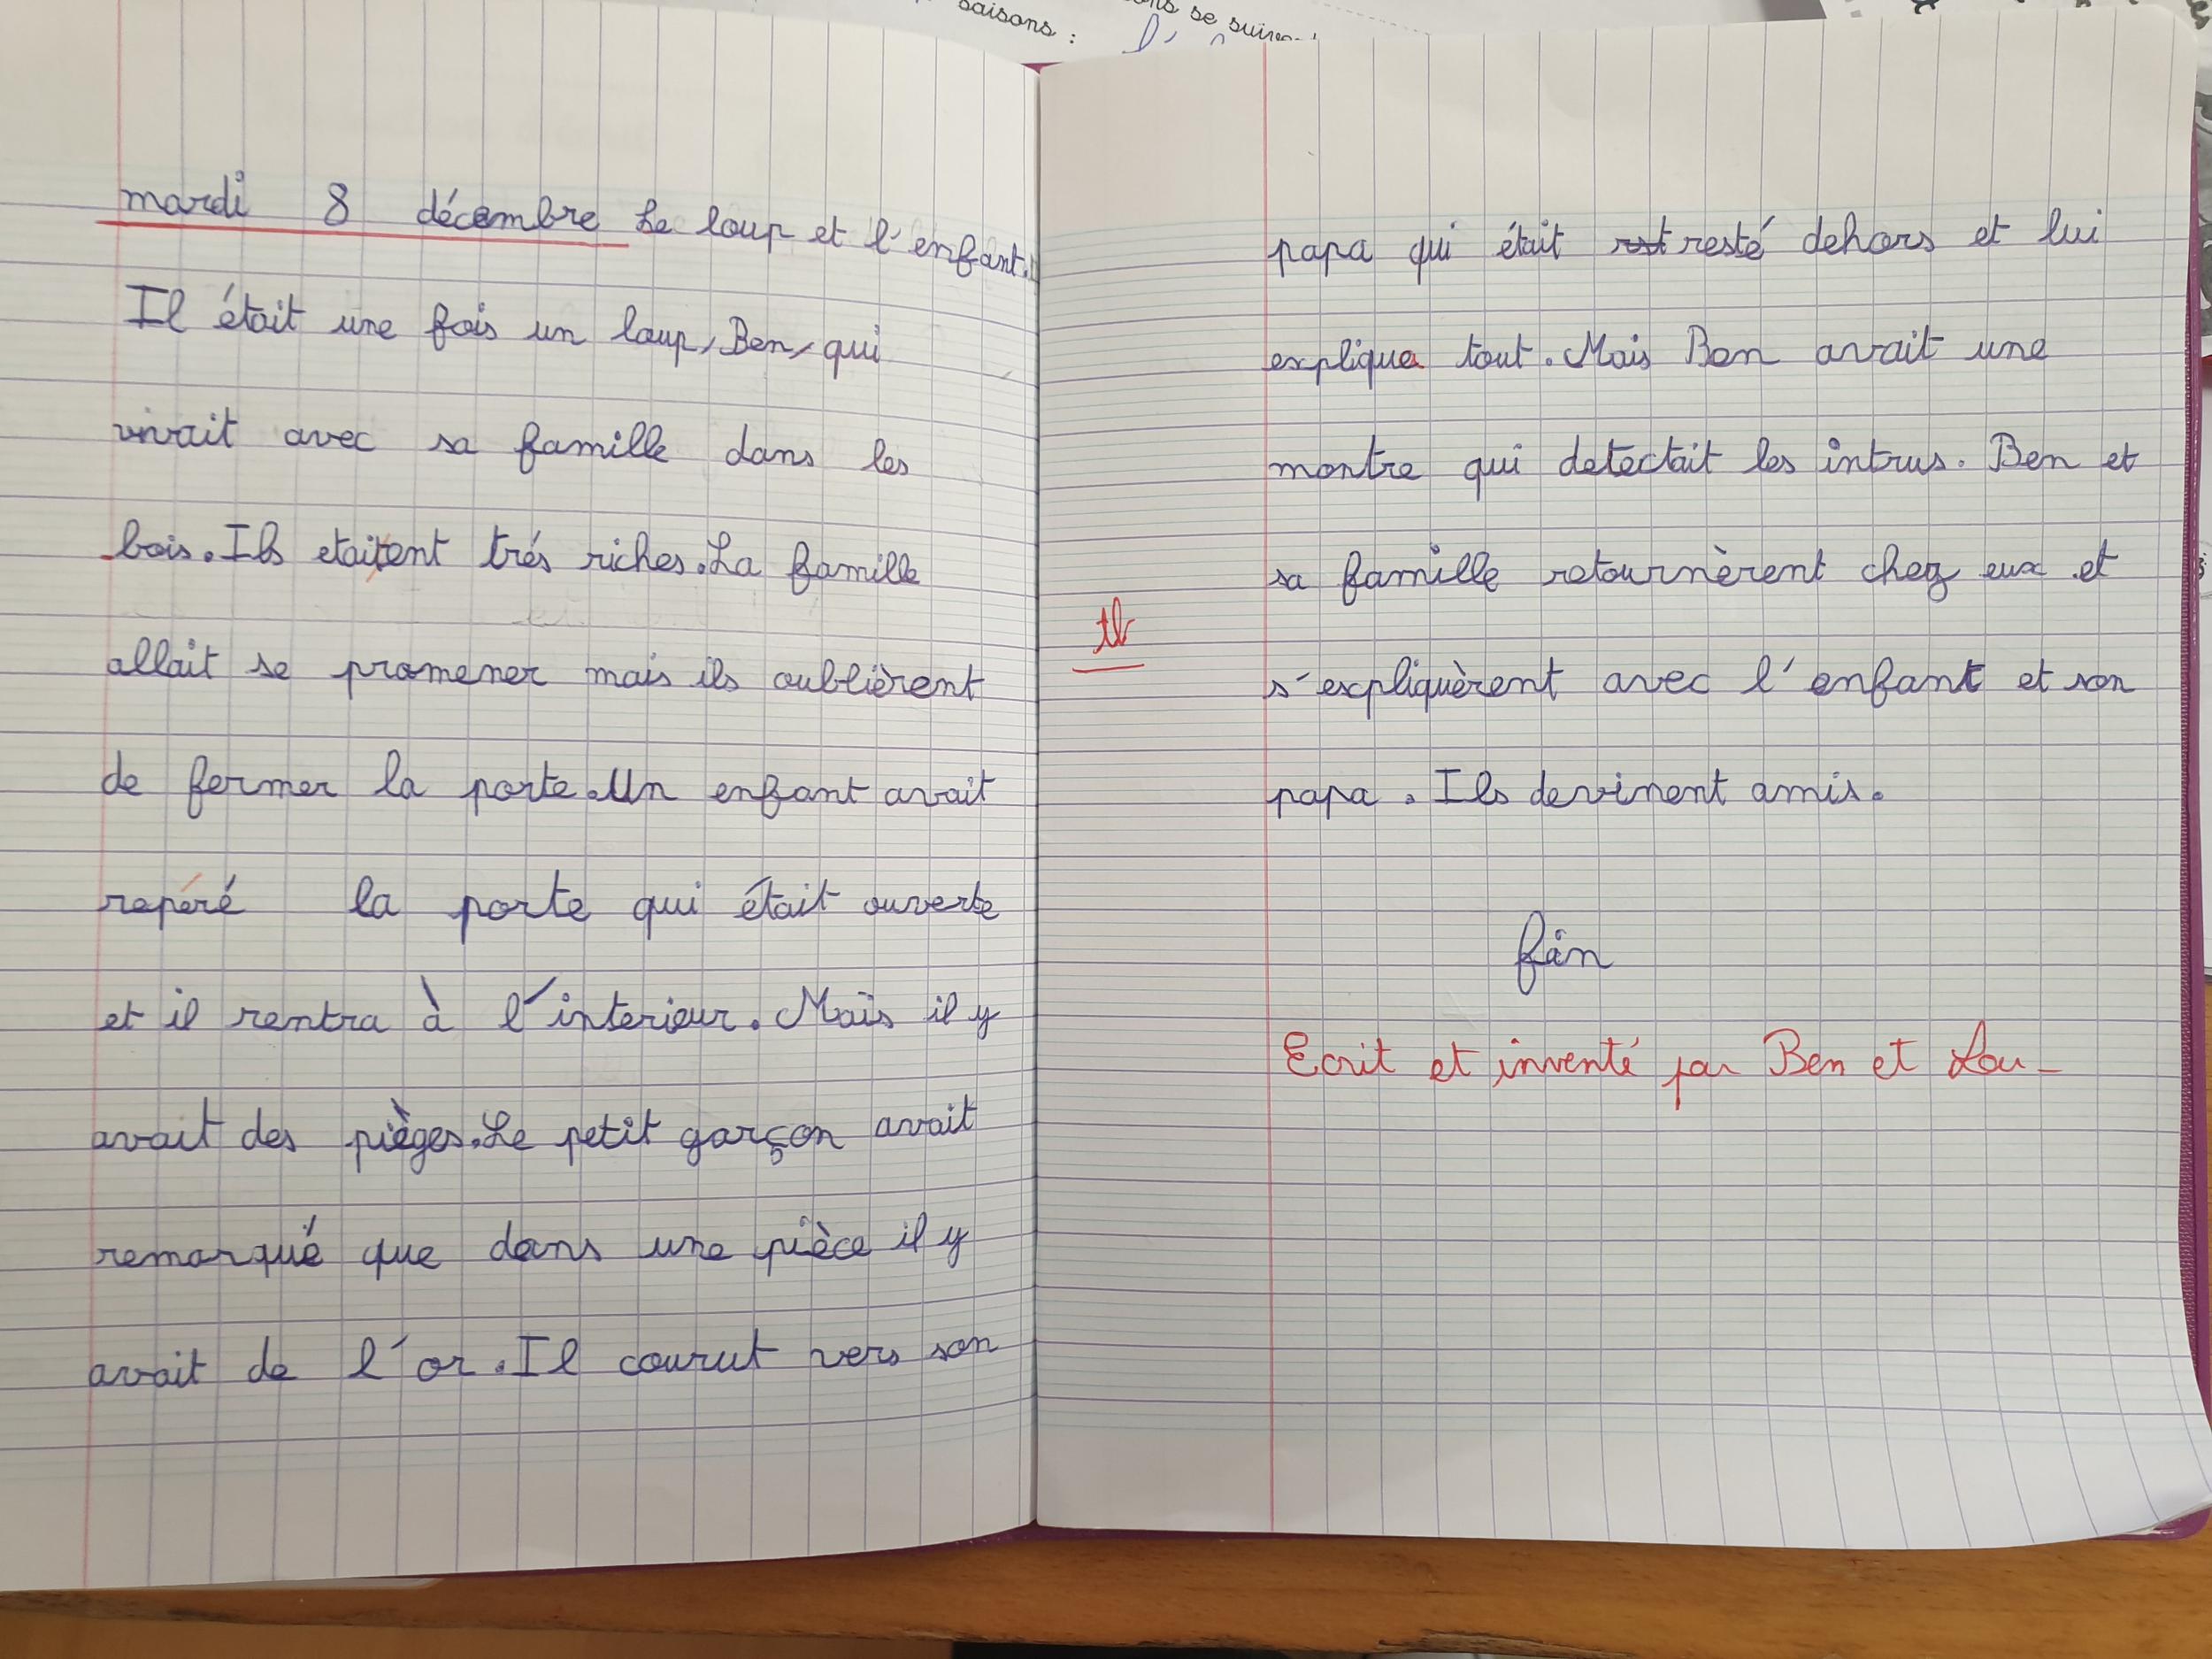 saisons :
se suiven
mardi 8 décembre Le loup et l'enfant.
Il était une fois un loup, Ben, qui
vivait avec sa famille dans les
bois. Ils etaient trés riches. La famille
allait se promener mais ils oublièrent
de fermer la porte. Un enfant avait
repéré la porte qui était ouverte
et il rentra à l'interieur. Mais il y
avait des pièges. Le petit garçon avait
remarqué que dans une pièce il y
avait de l'or. Il courut vers son
papa qui était rst resté dehors et lui
explique tout. Mais Ben avait une
montre qui detectait les intrus. Ben et
sa famille retournèrent chez eux et
tb
s'expliquèrent avec l'enfant et son
papa. Ils devinent amis.
fin
Ecrit et inventé par Ben et Lou_